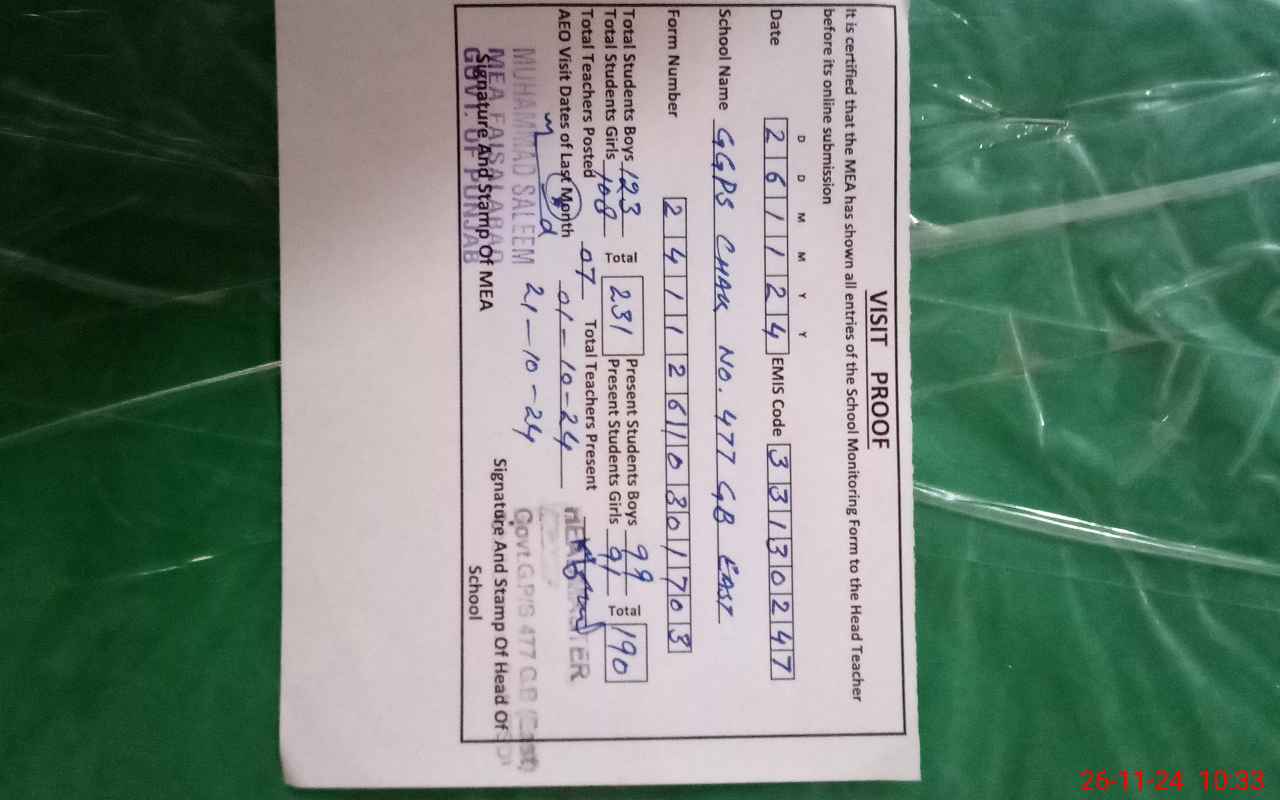 VISIT PROOF
It is certified that the MEA has shown all entries of the School Monitoring Form to the Head Teacher
before its online submission
D D M M Y Y
Date 261124 EMIS Code 33130247
School Name GGPS CHAK NO. 477 GB EAST
Form Number 241126110301703
Total Students Boys 123 Total 231 Present Students Boys 99 Total 190
Total Students Girls 108 Present Students Girls 91
Total Teachers Posted 07 Total Teachers Present
AEO Visit Dates of Last Month 01-10-24
21-10-24
MUHAMMAD SALEEM
MEA FAISALABAD
GOVT. OF PUNJAB
Signature And Stamp Of MEA
HEADMASTER
Govt.G.P/S 477 G.B (East)
Signature And Stamp Of Head Of
School
26-11-24 10:33